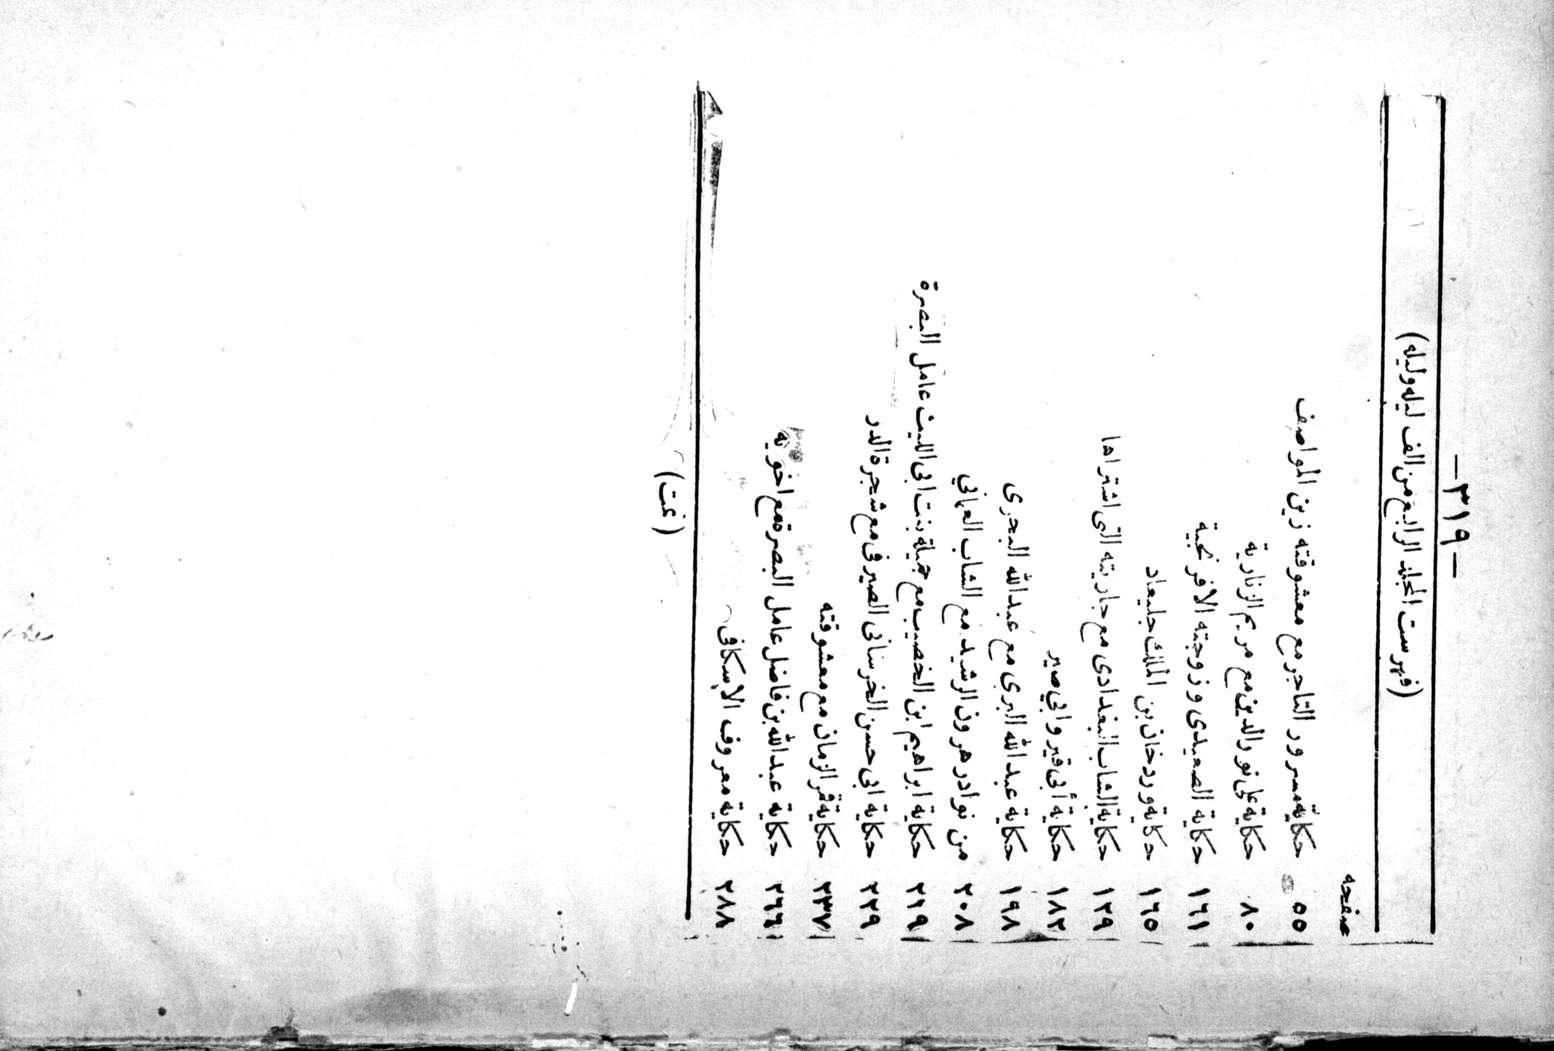 — ٣١٩ —
(فهرست المجلد الرابع من الف ليله وليله)
صفحه
٥٥ حكاية مسرور التاجر مع معشوقته زين المواصف
٨٠ حكاية على نور الدين مع مريم الزنارية
١٦١ حكاية الصعيدى وزوجته الافرنجية
١٦٥ حكاية وردخان بن الملك جليعاد
١٣٩ حكاية الشاب البغدادى مع جاريته التى اشتراها
١٨٣ حكاية أبى قير وابي صير
١٩٨ حكاية عبد الله البرى مع عبد الله البحرى
٢٠٨ من نوادر هرون الرشيد مع الشاب العماني
٢١٩ حكاية ابراهيم ابن الخصيب مع جميلة بنت ابى الليث عامل البصرة
٢٢٩ حكاية ابى حسن الخرسانى الصيرفى مع شجرة الدر
٢٣٧ حكاية قمر الزمان مع معشوقته
٢٦٦ حكاية عبد الله بن فاضل عامل البصرة مع اخويه
٢٨٨ حكاية معروف الإسكافى
(تمت)